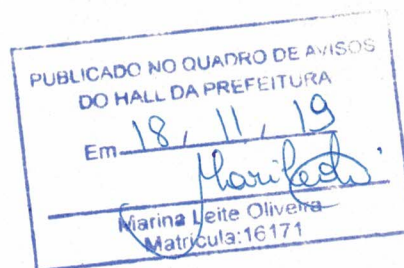 PUBLICADO NO QUADRO DE AVISOS
DO HALL DA PREFEITURA
Em 18, 11, 19
Marina Leite Oliveira
Matrícula:16171